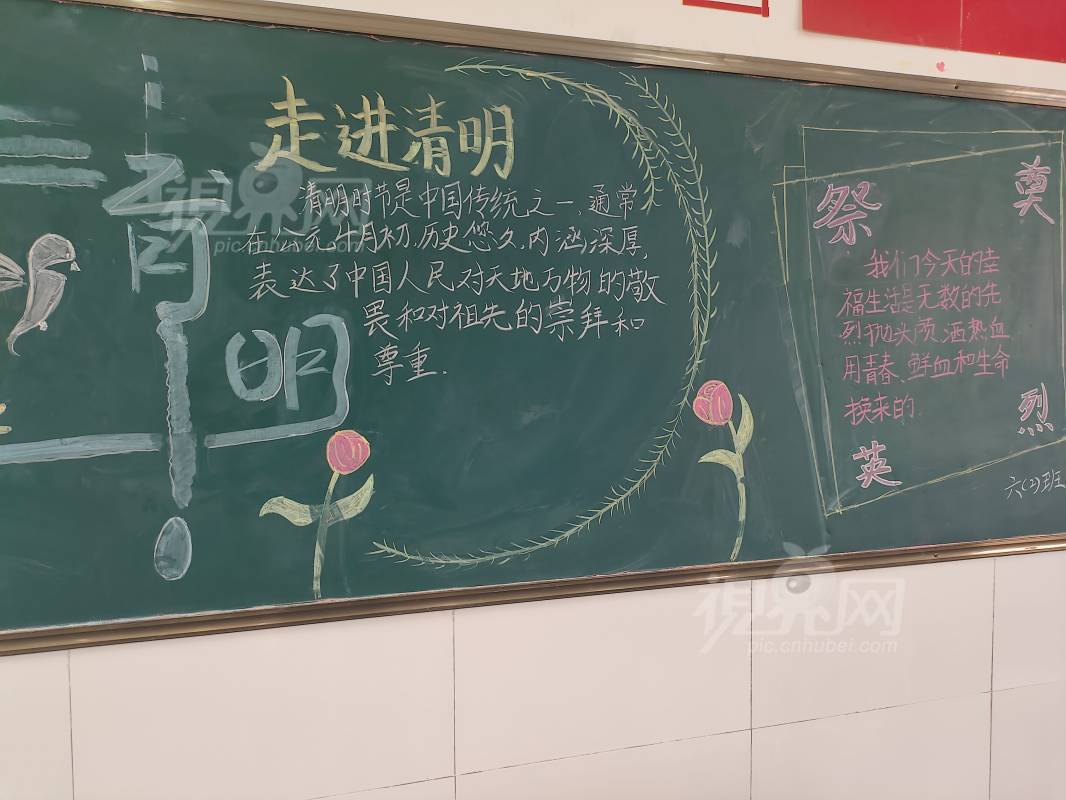 走进清明
清明时节是中国传统之一,通常
在公元4月初.历史悠久,内涵深厚,
表达了中国人民对天地万物的敬
畏和对祖先的崇拜和
尊重.
明
祭
奠
我们今天的幸
福生活是无数的先
烈抛头颅,洒热血
用青春、鲜血和生命
换来的.
英
烈
六(2)班
視界网
pic.cnhubei.com
視界网
pic.cnhubei.com